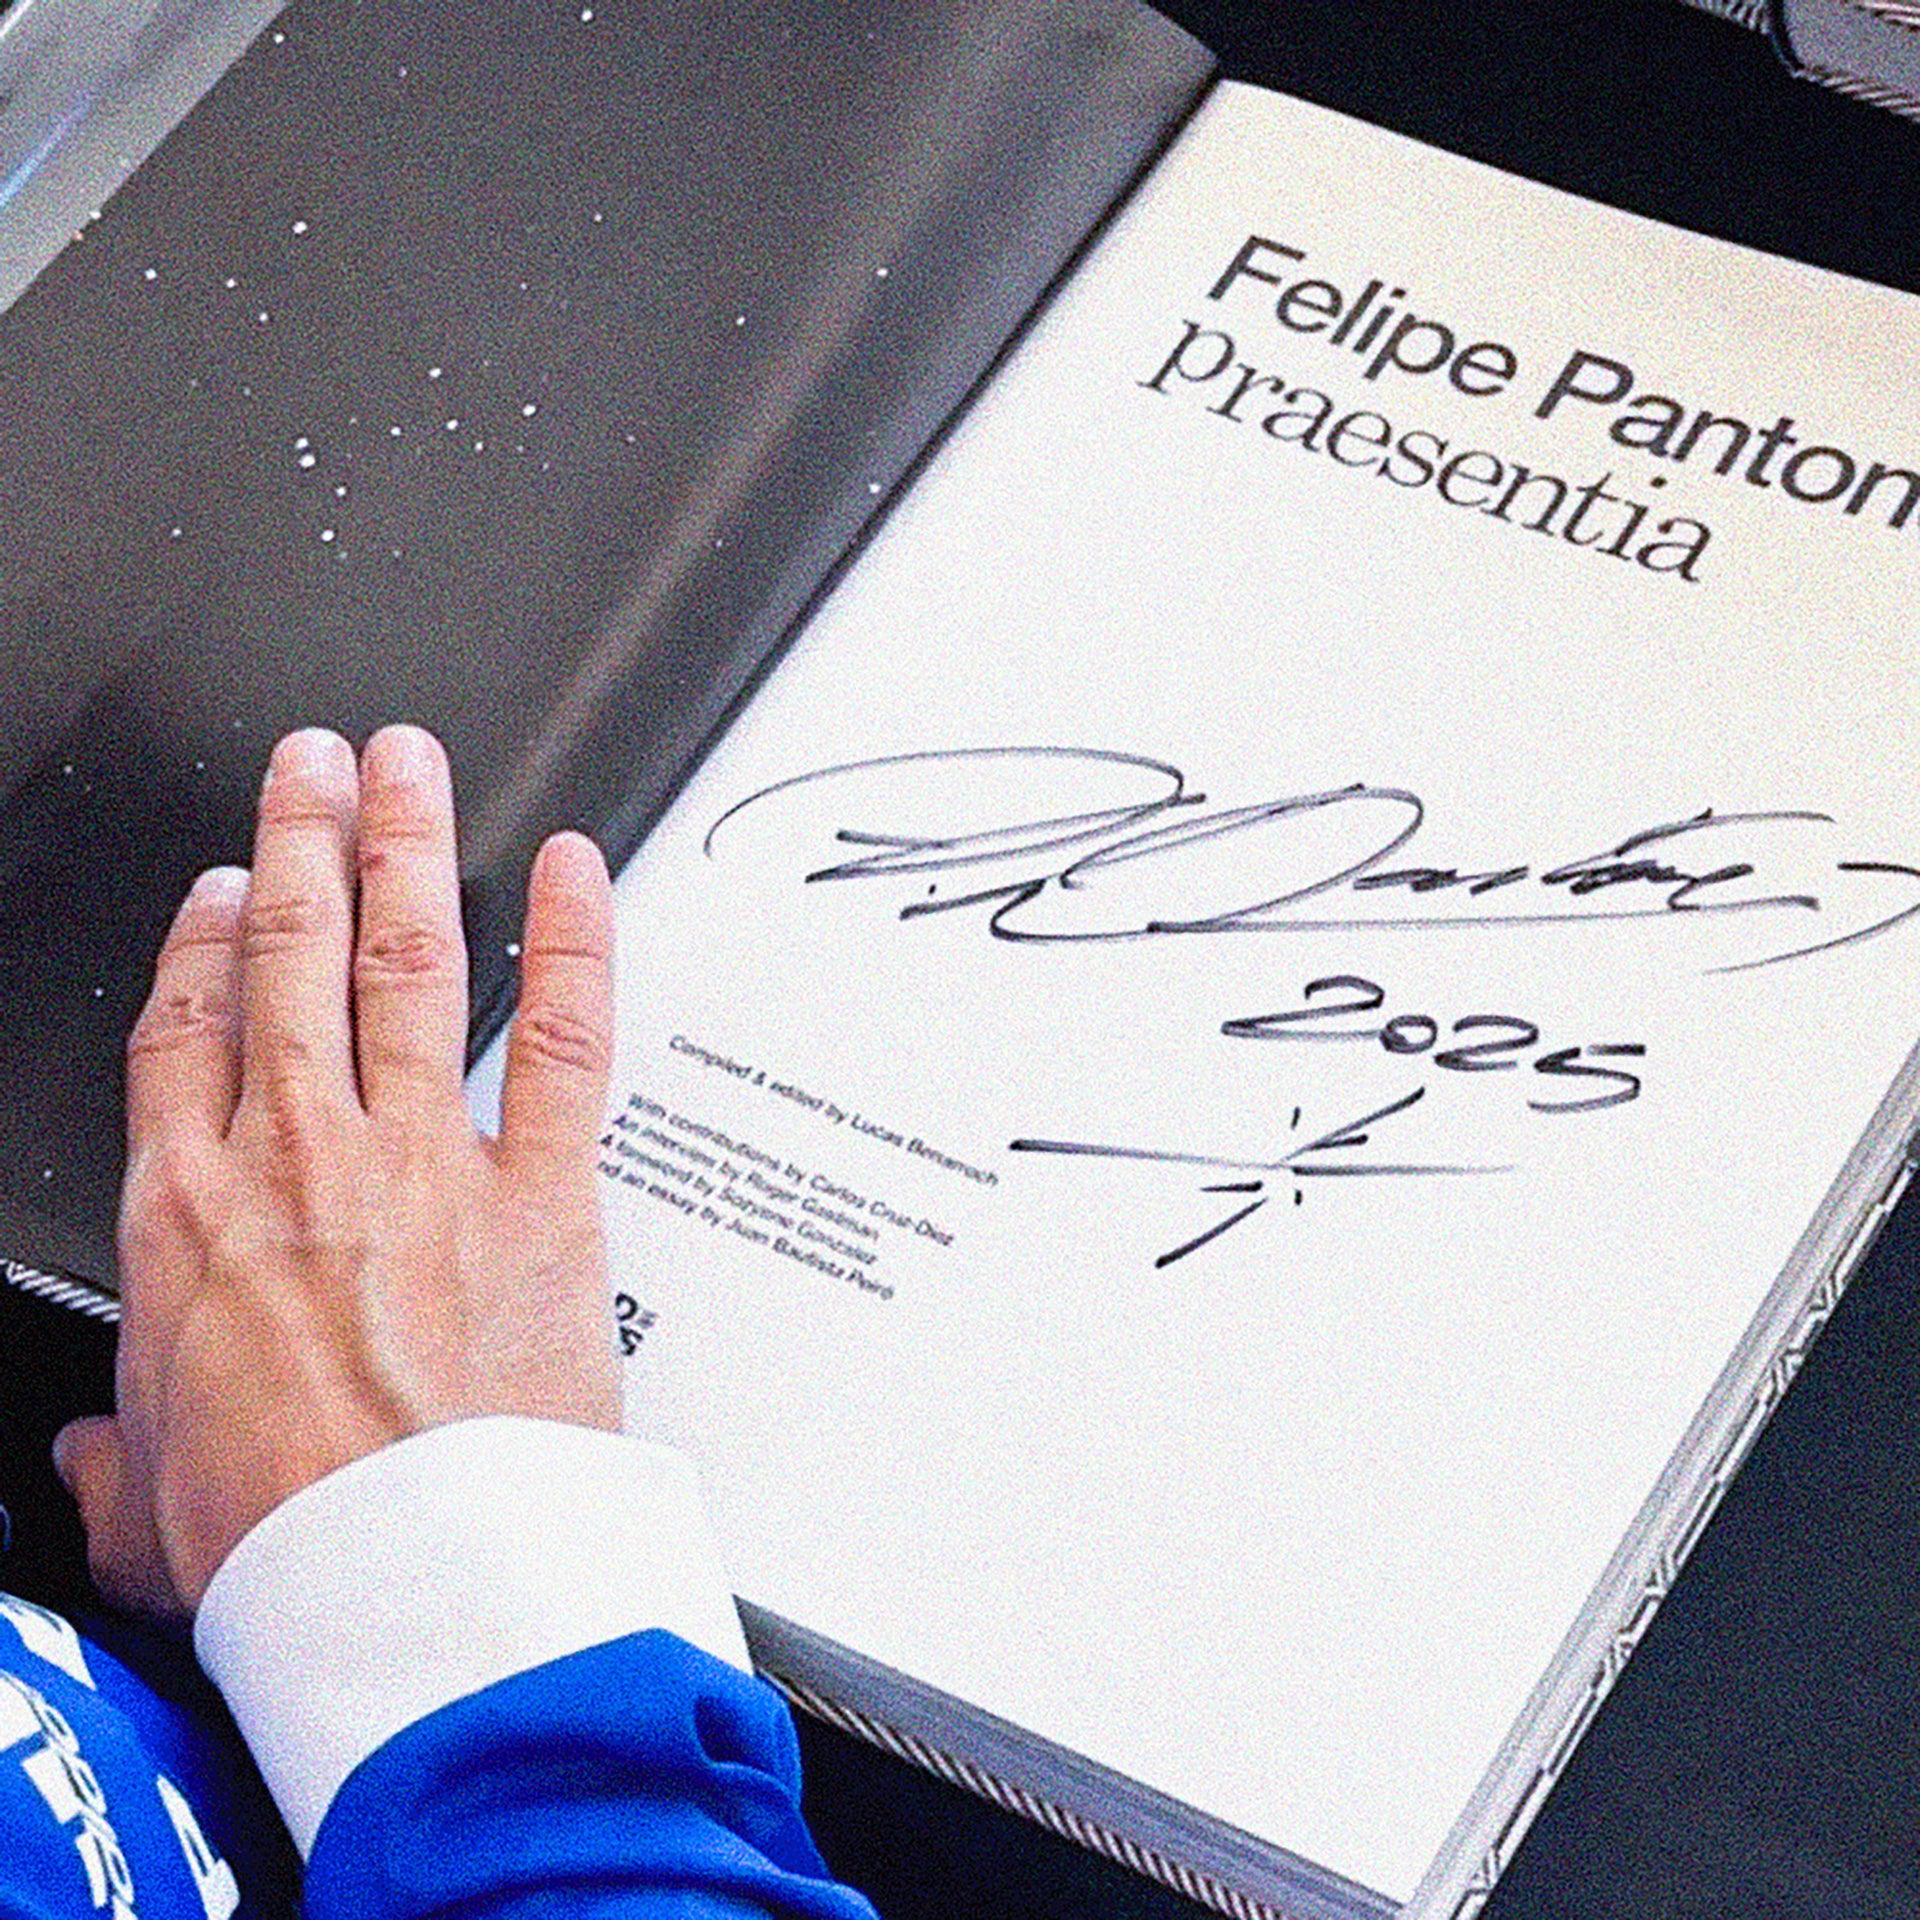 Felipe Panton
praesentia
2025
Compiled & edited by Lucas Benarroch
With contributions by Carlos Cruz-Diez
An interview by Roger Gastman
A foreword by Soryane González
nd an essay by Juan Bautista Peiró